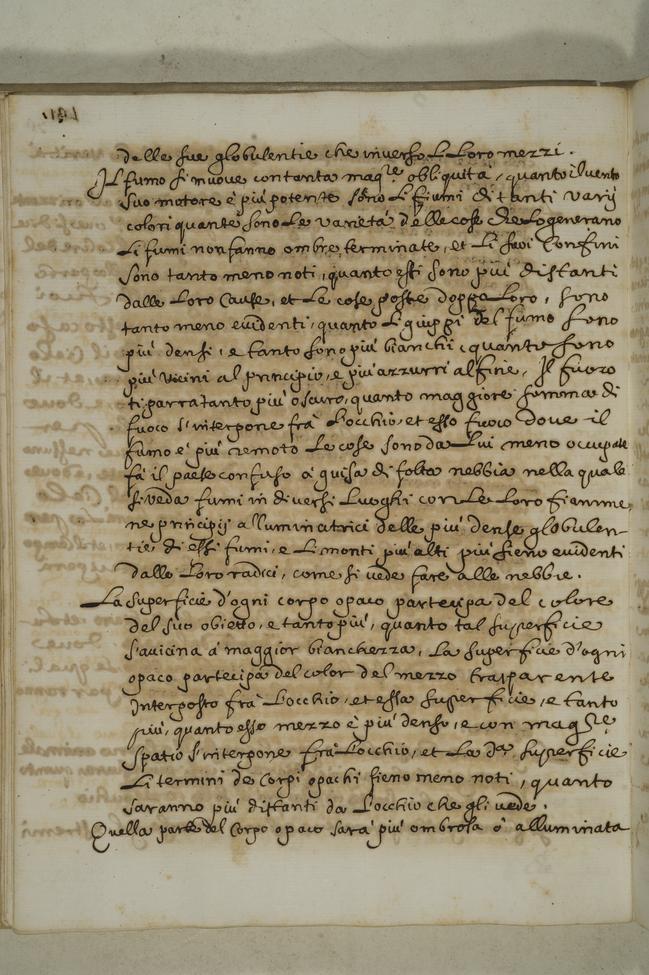 delle sue globulentie che inverso L Loro mezzi.
IL fumo si muove con tanta mag.re obliquità, quanto il uento
suo motore è piu potente sono Li fiumi di tanti varij
colori quante sono Le varietà delle cose che Lo generano
Li fumi non fanno ombre terminate, et Li suoi Confini
sono tanto meno noti, quanto essi sono piu distanti
dalle Loro Cause, et Le cose poste doppo Loro, sono
tanto meno euidenti, quanto Li gruppi del fumo sono
piu densi, e tanto sono piu bianchi, quanto sono
piu vicini al principio, e piu azzurri al fine. Il fuoco
ti parrà tanto piu oscuro, quanto maggiore somma di
fuoco s'interpone frà L'occhio, et esso fuoco doue il
fumo è piu remoto Le cose sono da Lui meno occupate
fà il paese confuso à guisa di folta nebbia nella quale
si veda fumi in diversi Luoghi con Le Loro fiamme
ne principij alluminatrici delle piu dense globulen-
tie di essi fumi, e Li monti piu alti piu sieno euidenti
dalle Loro radici, come si uede fare alle nebbie.
La superficie d'ogni corpo opaco partecipa del colore
del suo obietto, e tanto piu, quanto tal superficie
s'auicina à maggior bianchezza, La superficie d'ogni
opaco partecipa del color del mezzo trasparente
Interposto frà L'occhio, et essa superficie, e tanto
piu, quanto esso mezzo è piu denso, e con mag.re
spatio s'interpone frà L'occhio, et La d.a superficie
Li termini de Corpi opachi sieno meno noti, quanto
saranno piu distanti da L'occhio che gli uede.
Quella parte del Corpo opaco sarà piu ombrosa ò alluminata